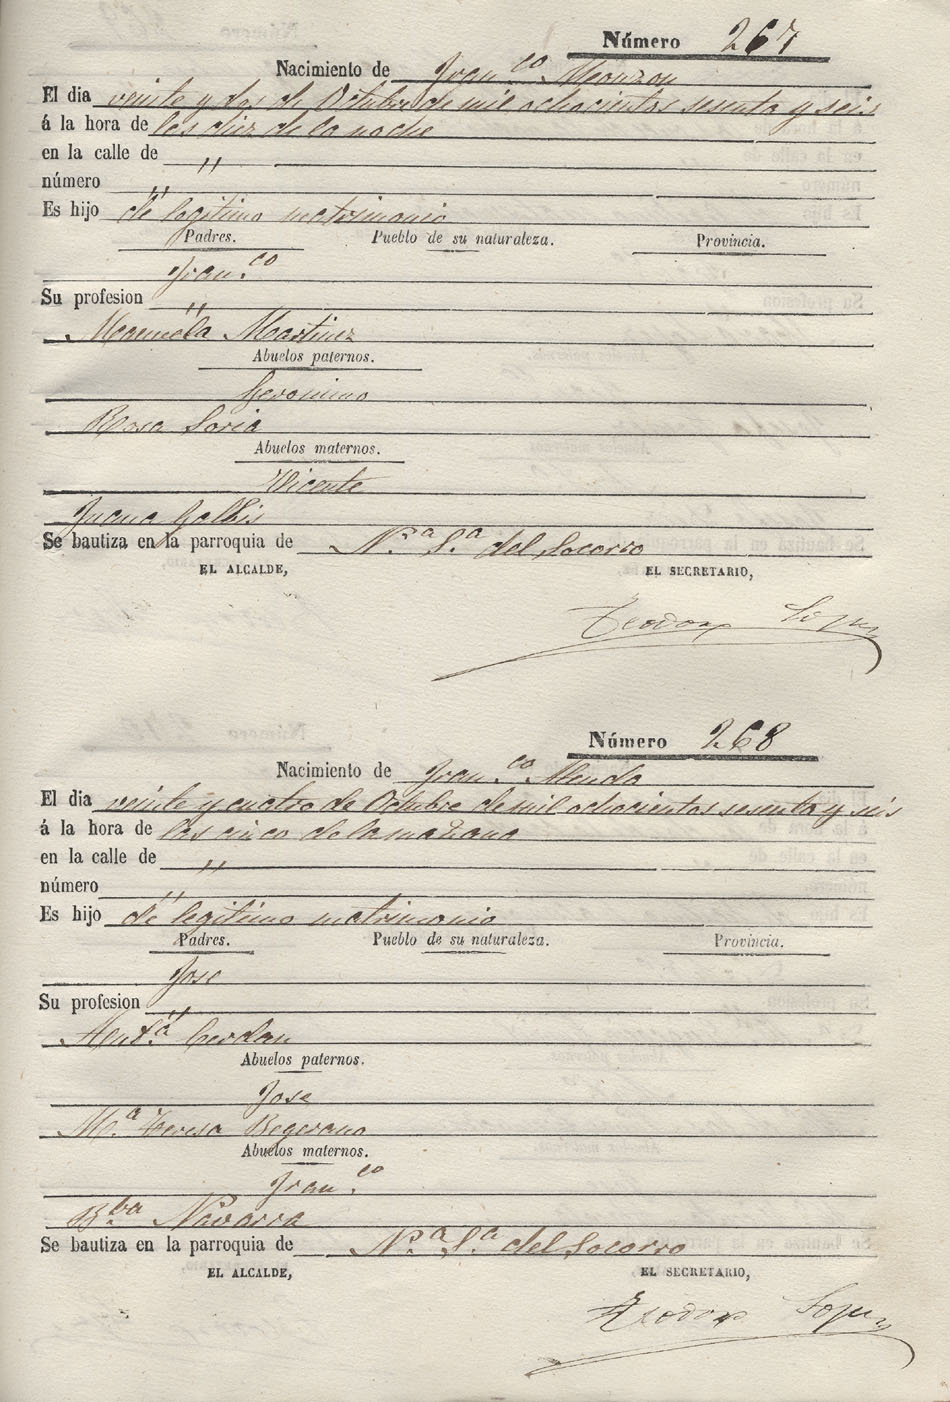 Número 267
Nacimiento de Fran.co Monzon
El dia veinte y dos de Octubre de mil ochocientos sesenta y seis
á la hora de las diez de la noche
en la calle de "
número "
Es hijo de legitimo matrimonio
Padres. Pueblo de su naturaleza. Provincia.
Fran.co
Su profesion "
Manuela Martinez
Abuelos paternos.
Geronimo
Rosa Soria
Abuelos maternos.
Vicente
Juana Galbis
Se bautiza en la parroquia de N.ª S.ª del Socorro
EL ALCALDE, EL SECRETARIO,
Teodoro Lopez
Número 268
Nacimiento de Fran.co Alenda
El dia veinte y cuatro de Octubre de mil ochocientos sesenta y seis
á la hora de las cinco de la mañana
en la calle de "
número "
Es hijo de legitimo matrimonio
Padres. Pueblo de su naturaleza. Provincia.
Jose
Su profesion "
Cerdan
Abuelos paternos.
Jose
M.ª Teresa Begerano
Abuelos maternos.
Fran.co
B.ba Navarra
Se bautiza en la parroquia de N.ª S.ª del Socorro
EL ALCALDE, EL SECRETARIO,
Teodoro Lopez